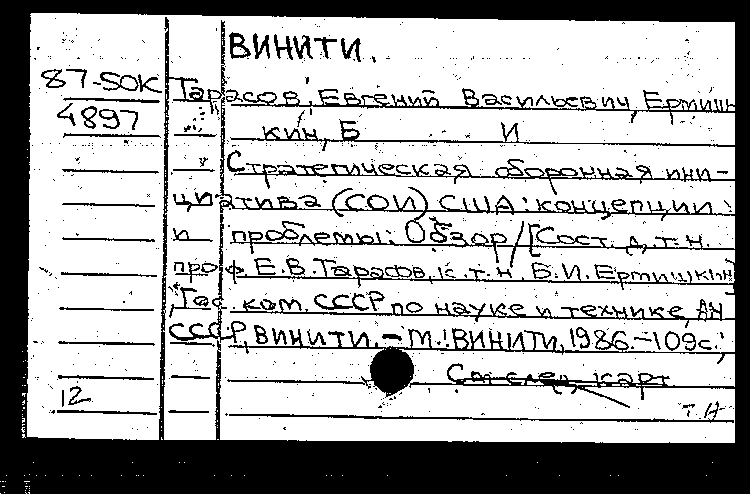 ВИНИТИ.
87-50К Тарасов, Евгений Васильевич, Ермиш-
4897 кин, Б И
Стратегическая оборонная ини-
циатива (СОИ) США: концепции
и проблемы: Обзор/[Сост. д.т.н.
проф. Е.В. Тарасов, к.т.н. Б.И. Ермишкин]
; Гос. ком. СССР по науке и технике, АН
СССР, ВИНИТИ. – М.: ВИНИТИ, 1986. – 109с.;
См след. карт
12 ТН